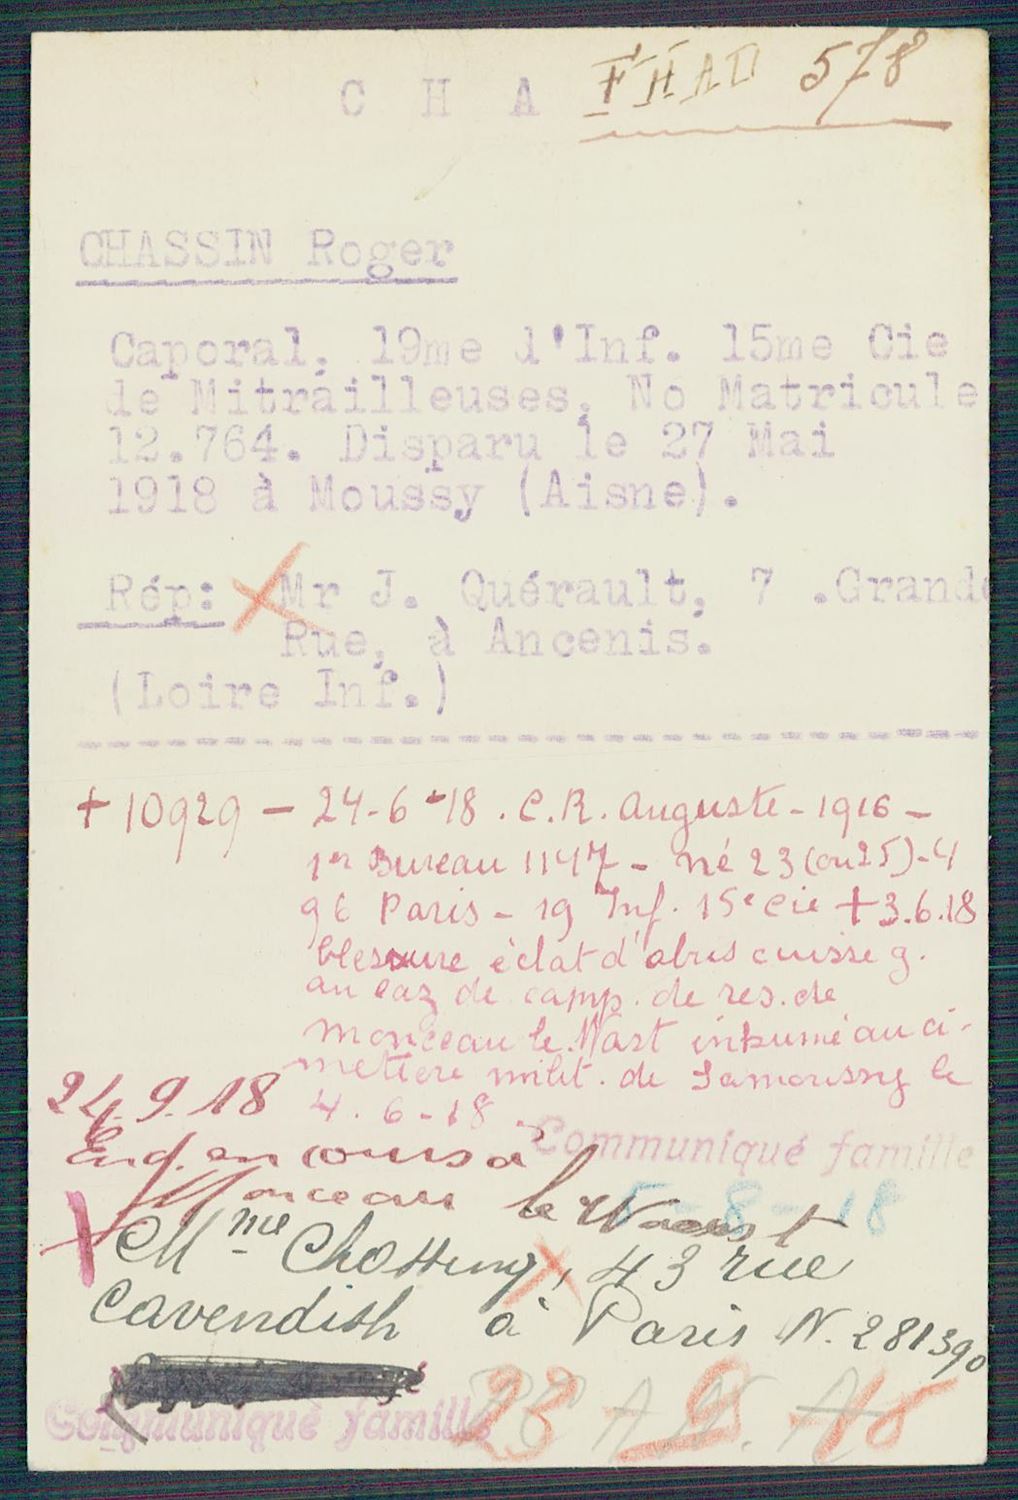 C H A FHAD 578
CHASSIN Roger
Caporal, 19me d'Inf. 15me Cie
de Mitrailleuses, No Matricule
12.764. Disparu le 27 Mai
1918 à Moussy (Aisne).
Rép: Mr J. Quérault, 7 .Grande
Rue, à Ancenis.
(Loire Inf.)
+ 10929 - 24-6-18. C.R. Auguste - 1916 -
1er Bureau 1147 - né 23 (ou 25)-4
96 Paris - 19 Inf. 15e Cie + 3.6.18
blessure éclat d'obus cuisse g.
au laz de camp. de res. de
Monceau le Wast inhumé au ci-
metiere milit. de Samoussy le
4. 6-18
24.9.18
Communiqué famille
Enq. en cours à
Monceau le Waast
5-8-18
Mme Chotteng, 43 rue
Cavendish à Paris N. 281390
Communiqué famille
23 - 9 - 18